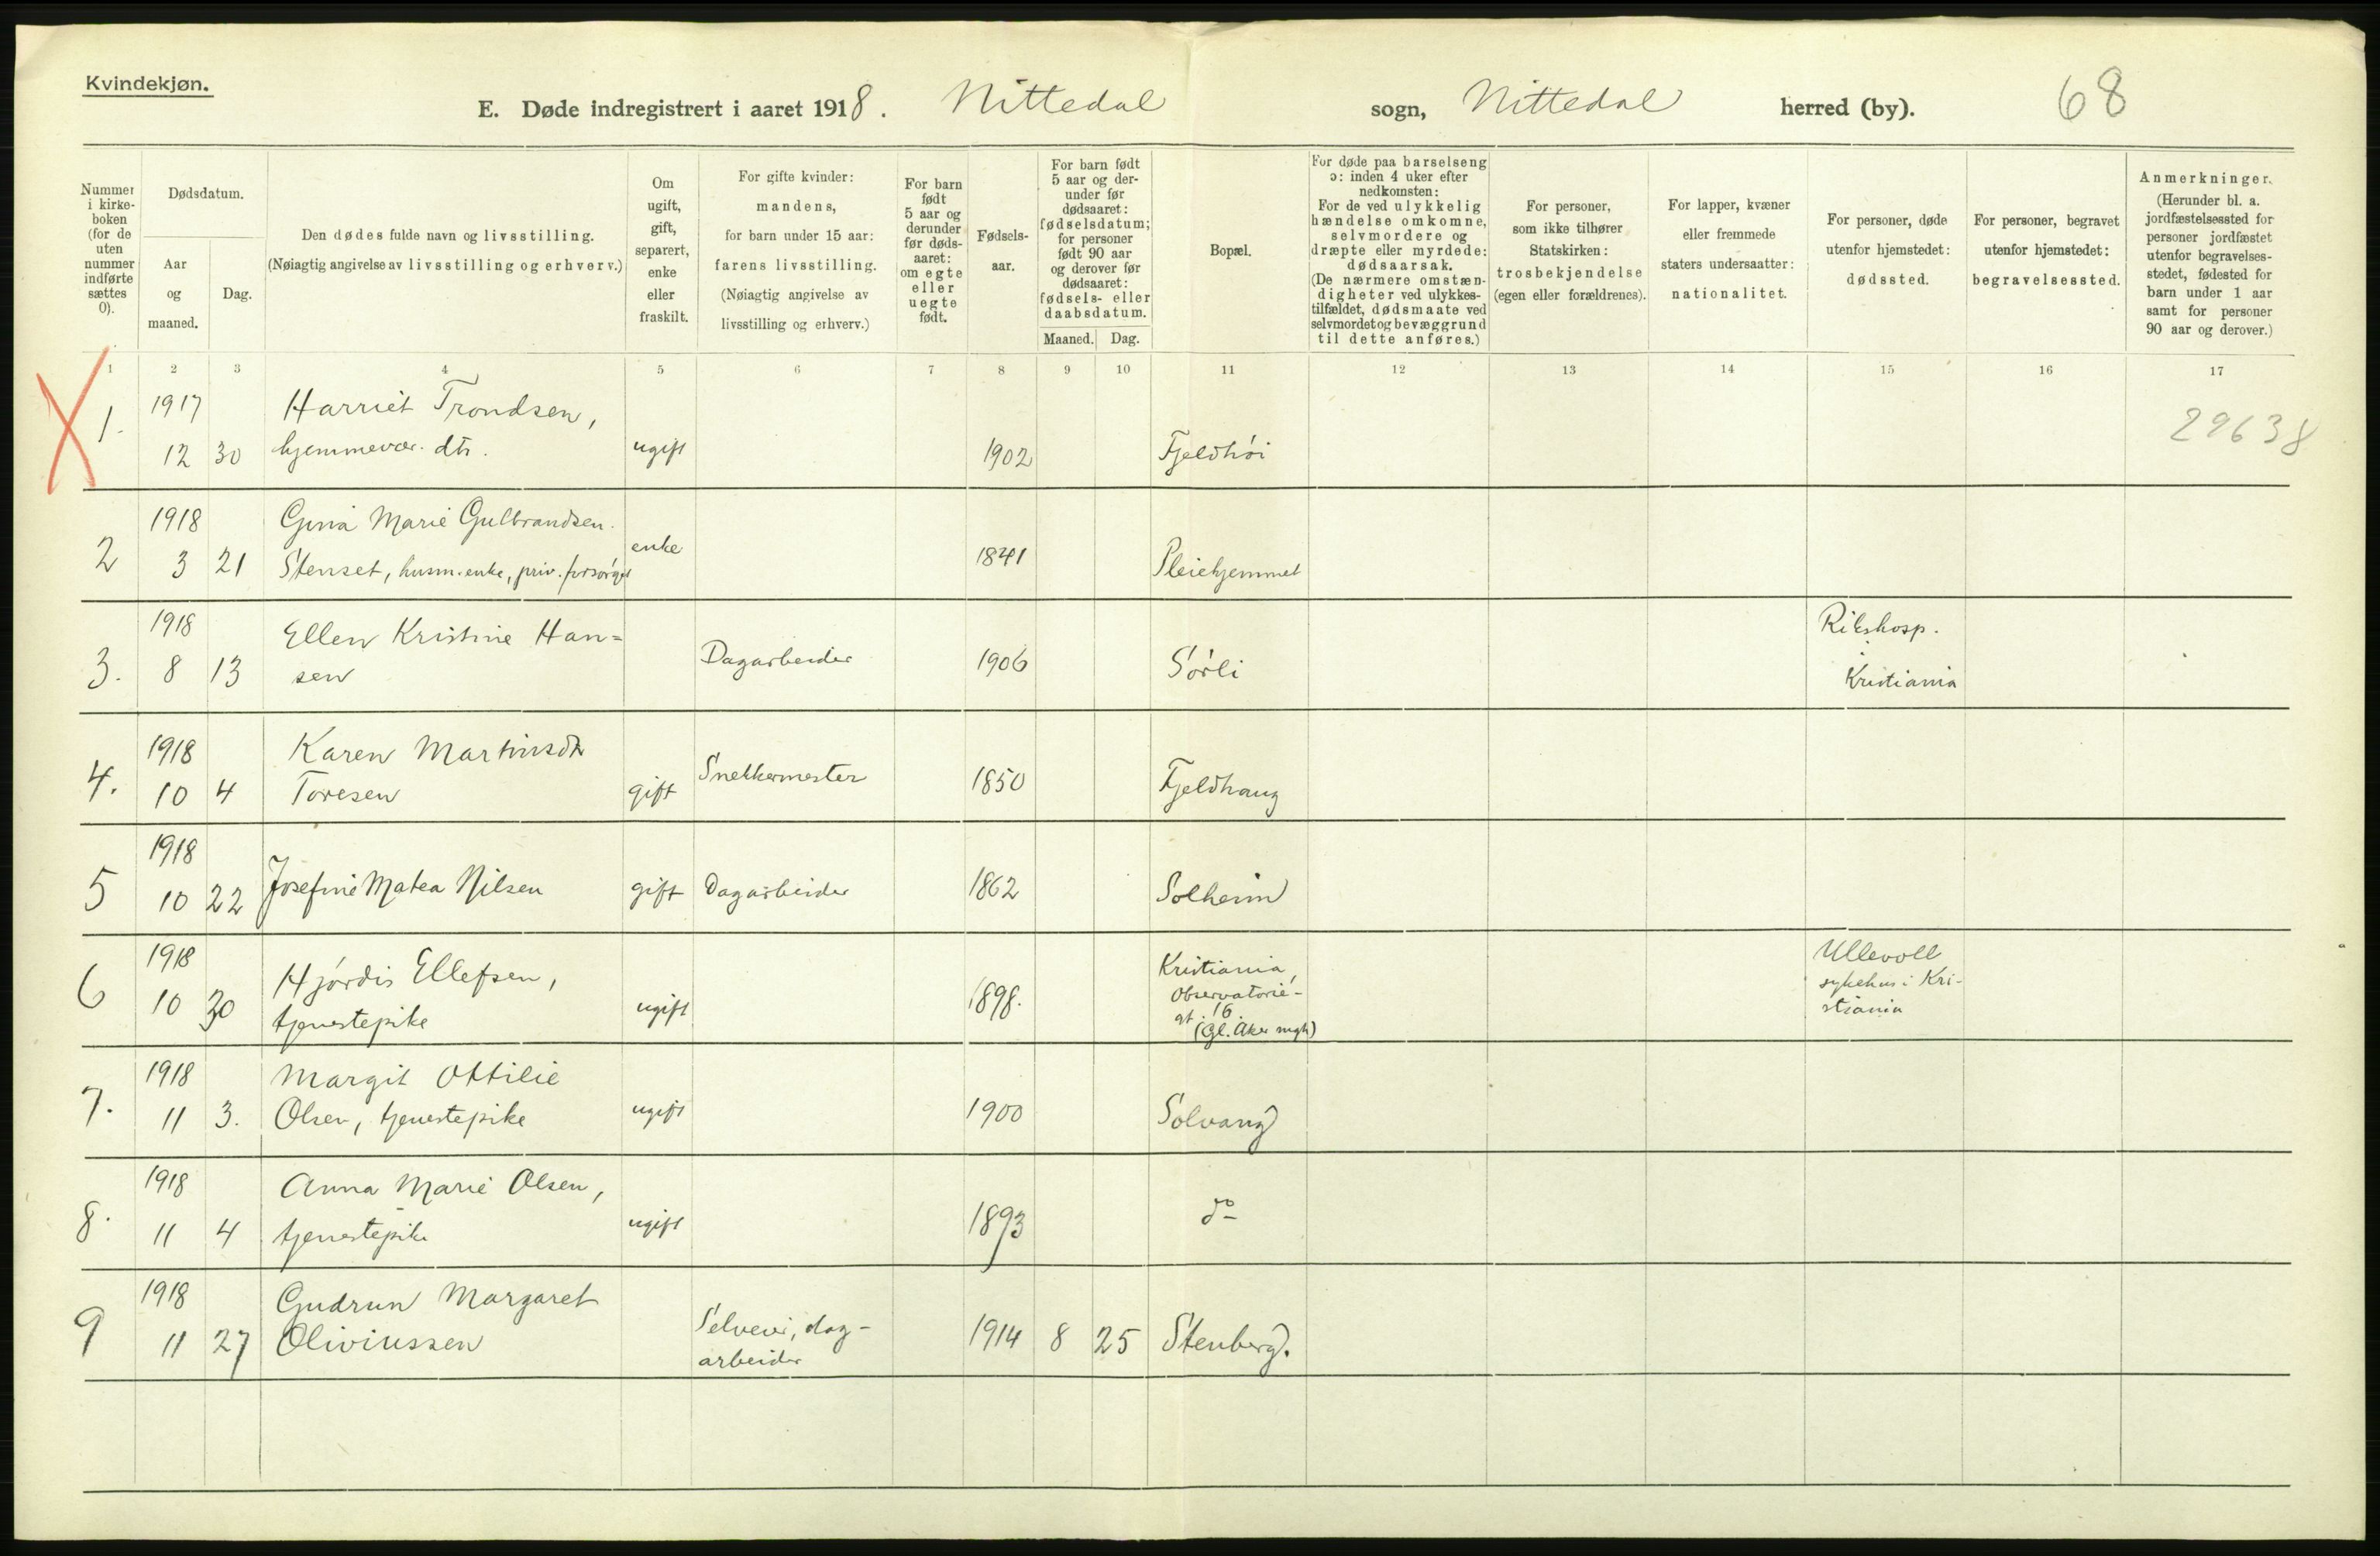 Kvindekjøn.
E. Døde indregistrert i aaret 1918. Nittedal sogn, Nittedal herred (by). 68
Nummer i kirkeboken (for de uten nummer indførte sættes 0).
Dødsdatum.
Aar og maaned.
Dag.
Den dødes fulde navn og livsstilling.
(Nøiagtig angivelse av livsstilling og erhverv.)
Om ugift, gift, separert, enke eller fraskilt.
For gifte kvinder:
mandens,
for barn under 15 aar:
farens livsstilling.
(Nøiagtig angivelse av
livsstilling og erhverv.)
For barn født 5 aar og derunder før dødsaaret: om egte eller uegte født.
Fødsels-
aar.
For barn født 5 aar og derunder før dødsaaret: fødselsdatum; for personer født 90 aar og derover før dødsaaret: fødsels- eller daabsdatum.
Maaned. Dag.
Bopæl.
For døde paa barselseng
ɔ: inden 4 uker efter
nedkomsten:
For de ved ulykkelig
hændelse omkomne,
selvmordere og
dræpte eller myrdede:
dødsaarsak.
(De nærmere omstæn-
digheter ved ulykkes-
tilfældet, dødsmaate ved
selvmordet og bevæggrund
til dette anføres.)
For personer,
som ikke tilhører
Statskirken:
trosbekjendelse
(egen eller forældrenes).
For lapper, kvæner
eller fremmede
staters undersaatter:
nationalitet.
For personer, døde
utenfor hjemstedet:
dødssted.
For personer, begravet
utenfor hjemstedet:
begravelsessted.
Anmerkninger.
(Herunder bl. a.
jordfæstelsessted for
personer jordfæstet
utenfor begravelses-
stedet, fødested for
barn under 1 aar
samt for personer
90 aar og derover.)
1 2 3 4 5 6 7 8 9 10 11 12 13 14 15 16 17
1. 1917 12 30 Harriet Trondsen,
hjemmevær. dtr. ugift 1902 Fjeldhøi 29638
2 1918 3 21 Gina Marie Gulbrandsen
Stenset, husm.enke, priv. forsørget enke 1841 Pleiehjemmet
3. 1918 8 13 Ellen Kristine Han=
sen Dagarbeider 1906 Sørli Rikshosp.
Kristiania
4. 1918 10 4 Karen Martinsdtr
Toresen gift Snekkermester 1850 Fjeldhaug
5 1918 10 22 Josefine Matea Nilsen gift Dagarbeider 1862 Solheim
6 1918 10 30 Hjørdis Ellefsen,
tjenestepike ugift 1898. Kristiania,
Observatorie-
gt. 16.
(Gl. Aker mgh) Ullevoll
sykehus i Kri-
stiania
7. 1918 11 3. Margit Ottilie
Olsen, tjenestepike ugift 1900 Solvang
8. 1918 11 4 Anna Marie Olsen,
tjenestepike ugift 1893 do
9 1918 11 27 Gudrun Margaret
Oliviussen Selveier, dag-
arbeider 1914 8 25 Stenberg.